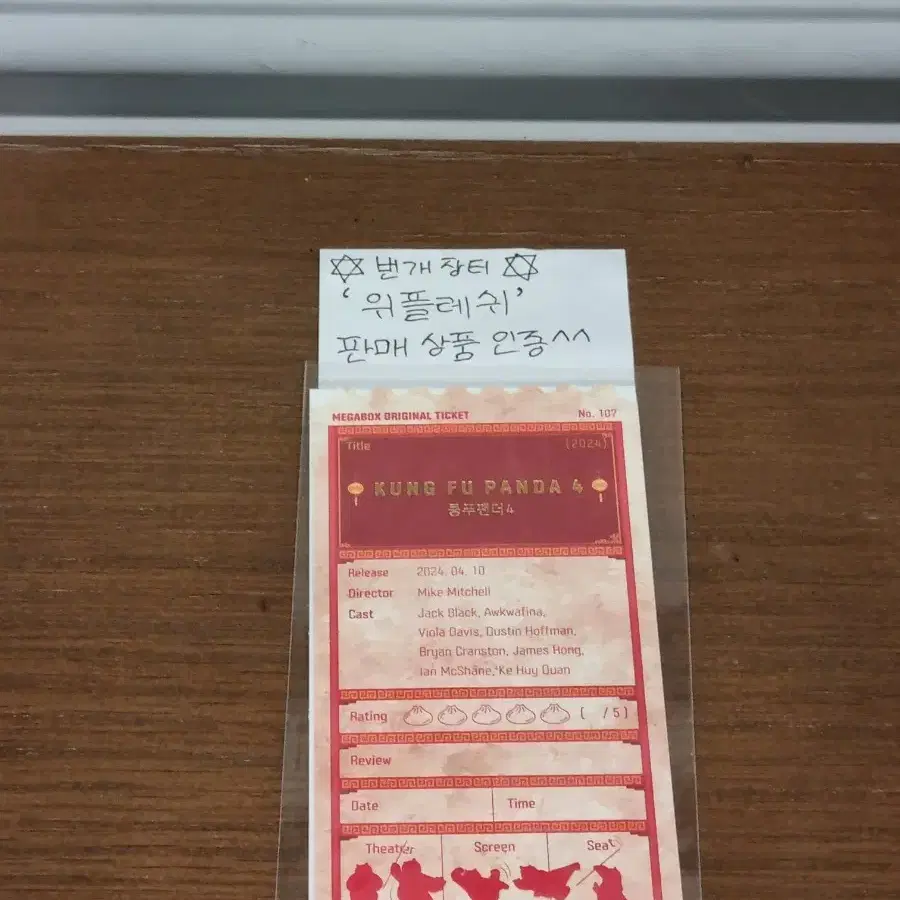 ✡ 번개장터 ✡
'위플레쉬'
판매 상품 인증^^
MEGABOX ORIGINAL TICKET No. 107
Title (2024)
KUNG FU PANDA 4
쿵푸팬더4
Release 2024. 04. 10
Director Mike Mitchell
Cast Jack Black, Awkwafina,
Viola Davis, Dustin Hoffman,
Bryan Cranston, James Hong,
Ian McShane, Ke Huy Quan
Rating ( / 5)
Review
Date Time
Theater Screen Seat